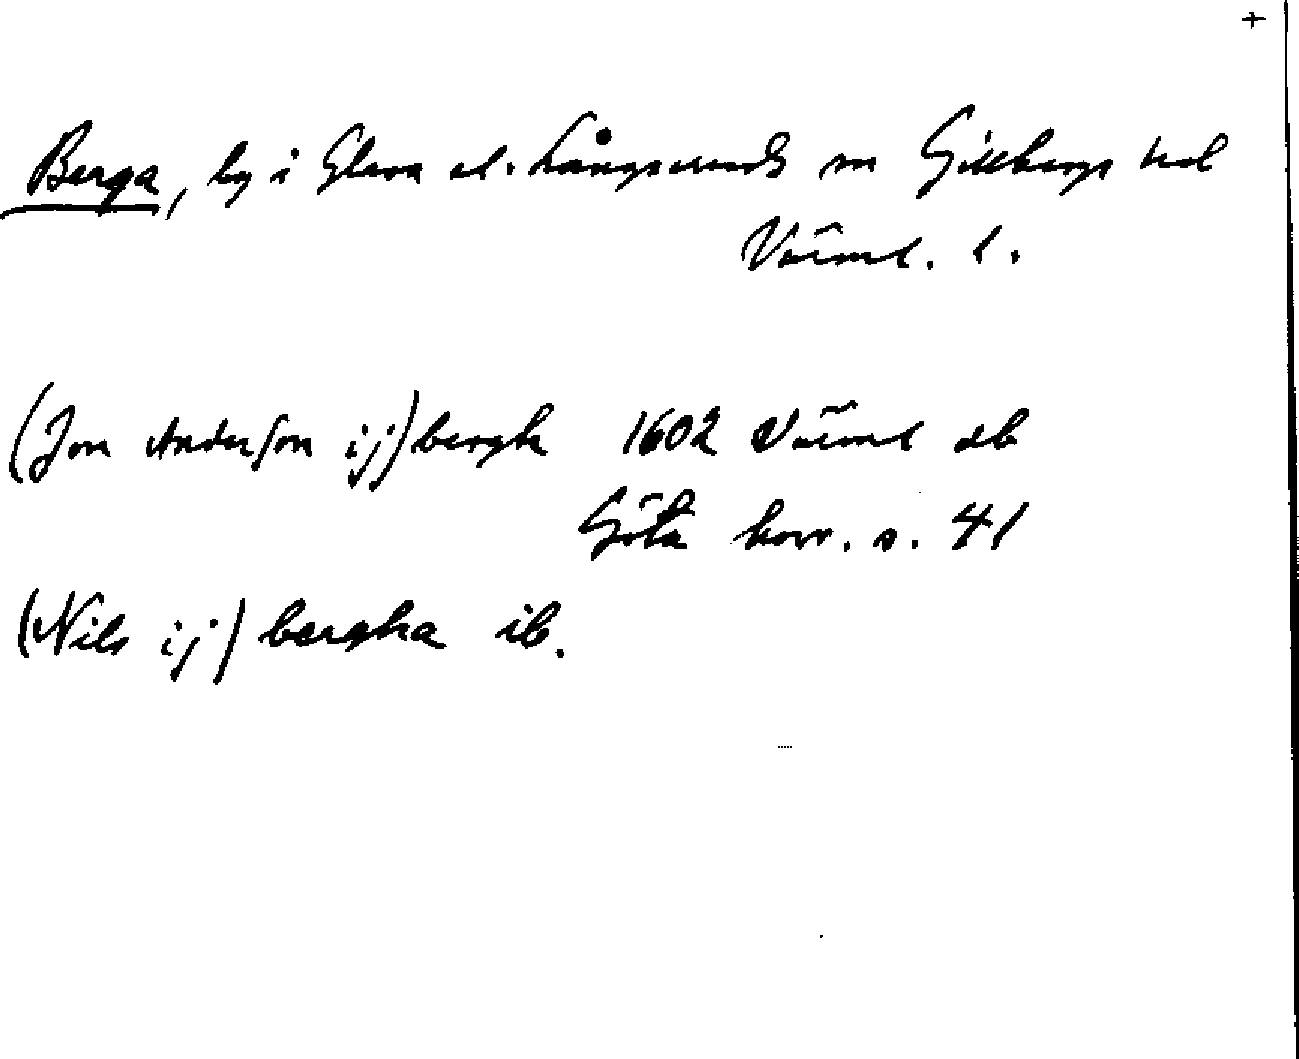 +
Berga, by i Glava el. Långserud sn Gillbergs hd
Värml. l.
(Jon Anderson ij) bergh 1602 Värml äb
Göta horr. s. 41
(Nils ij) bergha ib.